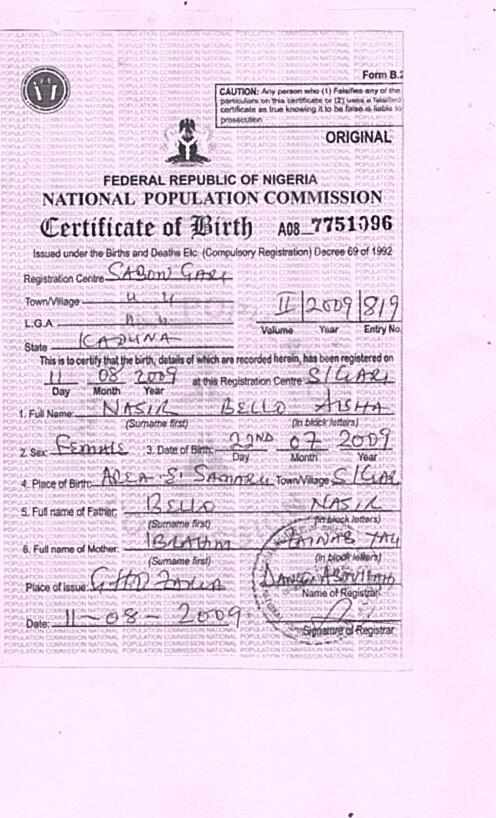 Form B.
CAUTION: Any person who (1) Falsifies any of the
particulars on this certificate or (2) uses a falsified
certificate as true knowing it to be false is liable to
prosecution
ORIGINAL
FEDERAL REPUBLIC OF NIGERIA
NATIONAL POPULATION COMMISSION
Certificate of Birth A08 7751096
Issued under the Births and Deaths Etc. (Compulsory Registration) Decree 69 of 1992
Registration Centre SABON GARI
Town/Village " "
II 2009 819
L.G.A " "
Volume Year Entry No.
State KADUNA
This is to certify that the birth, details of which are recorded herein, has been registered on
11 08 2009 at this Registration Centre S/GARI
Day Month Year
1. Full Name: NASIR BELLO AISHA
(Surname first) (in block letters)
2. Sex: FEMALE 3. Date of Birth: 22ND 07 2009
Day Month Year
4. Place of Birth: AREA SAMARU Town/Village S/GARI
5. Full name of Father: BELLO NASIR
(Surname first) (in block letters)
6. Full name of Mother: IBRAHIM ZAINAB
(Surname first) (in block letters)
Place of issue: ZARIA
Name of Registrar
Date: 11-08-2009
Signature of Registrar